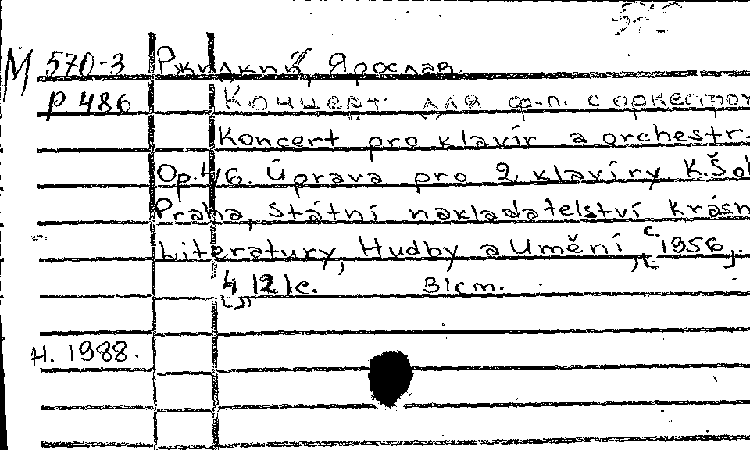 М 570-3 Ржидкий, Ярослав.
Р 486 Концерт для ф.-п. с оркестром
Koncert pro klavír a orchestr.
Op. 46. Úprava pro 2 klavíry K. Šol
Praha, Státní nakladatelství krásn
Literatury, Hudby a Umění, [c 1956].
[4] 121c. 31cm.
Н. 1988.